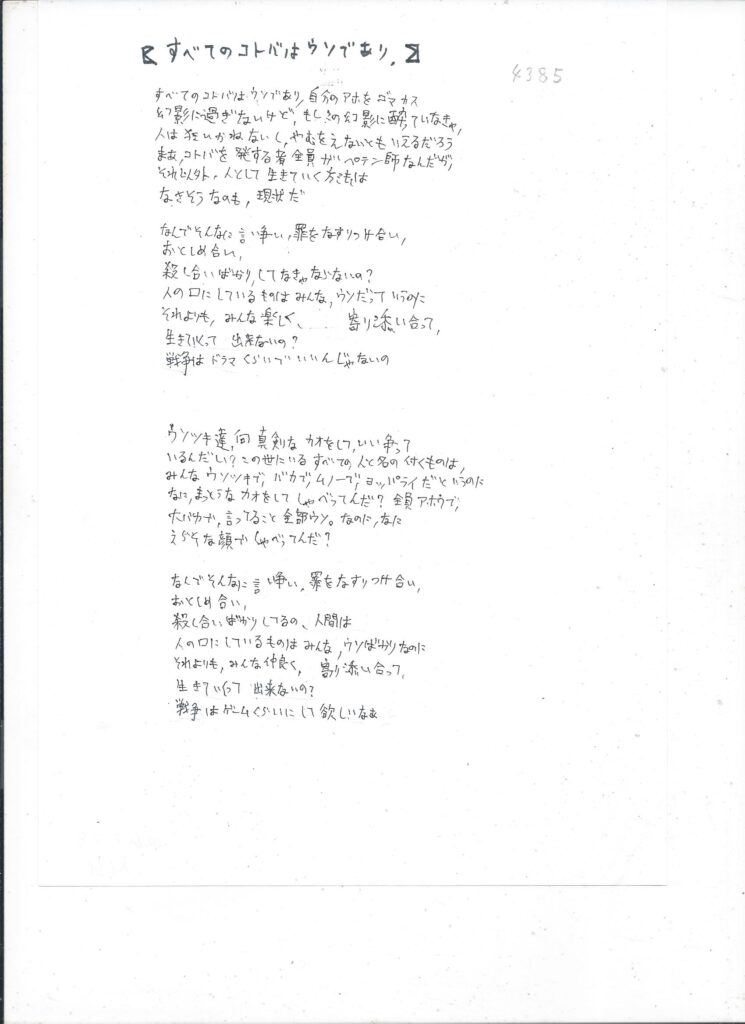 【すべてのコトバはウソであり、】
4385
すべてのコトバはウソであり、自分のアホをゴマカス
幻影に過ぎないけど、もしその幻影に酔っていなきゃ、
人は狂いかねないし、やむをえないともいえるだろう
まぁ、コトバを発する者全員がペテン師なんだが、
それ以外、人として生きていく方法は
なさそうなのも、現状だ
なんでそんなに言い争い、罪をなすりつけ合い、
おとしめ合い、
殺し合いばかり、してなきゃならないの?
人の口にしているものはみんな、ウソだっていうのに
それよりも、みんな楽しく、寄り添い合って、
生きていくって出来ないの?
戦争はドラマくらいでいいんじゃないの
ウソツキ達、何真剣なカオをして、いい争って
いるんだい?この世にいるすべての人と名の付くものは、
みんなウソツキで、バカで、ムノーで、ヨッパライだというのに
なに、まっとうなカオをしてしゃべってんだ?全員アホウで、
大バカで、言ってること全部ウソ。なのに、なに
えらそな顔でしゃべってんだ?
なんでそんなに言い争い、罪をなすりつけ合い、
おとしめ合い、
殺し合いばかりしてるの、人間は
人の口にしているものはみんな、ウソばかりなのに
それよりも、みんな仲良く、寄り添い合って、
生きていくって出来ないの?
戦争はゲームくらいにして欲しいなぁ